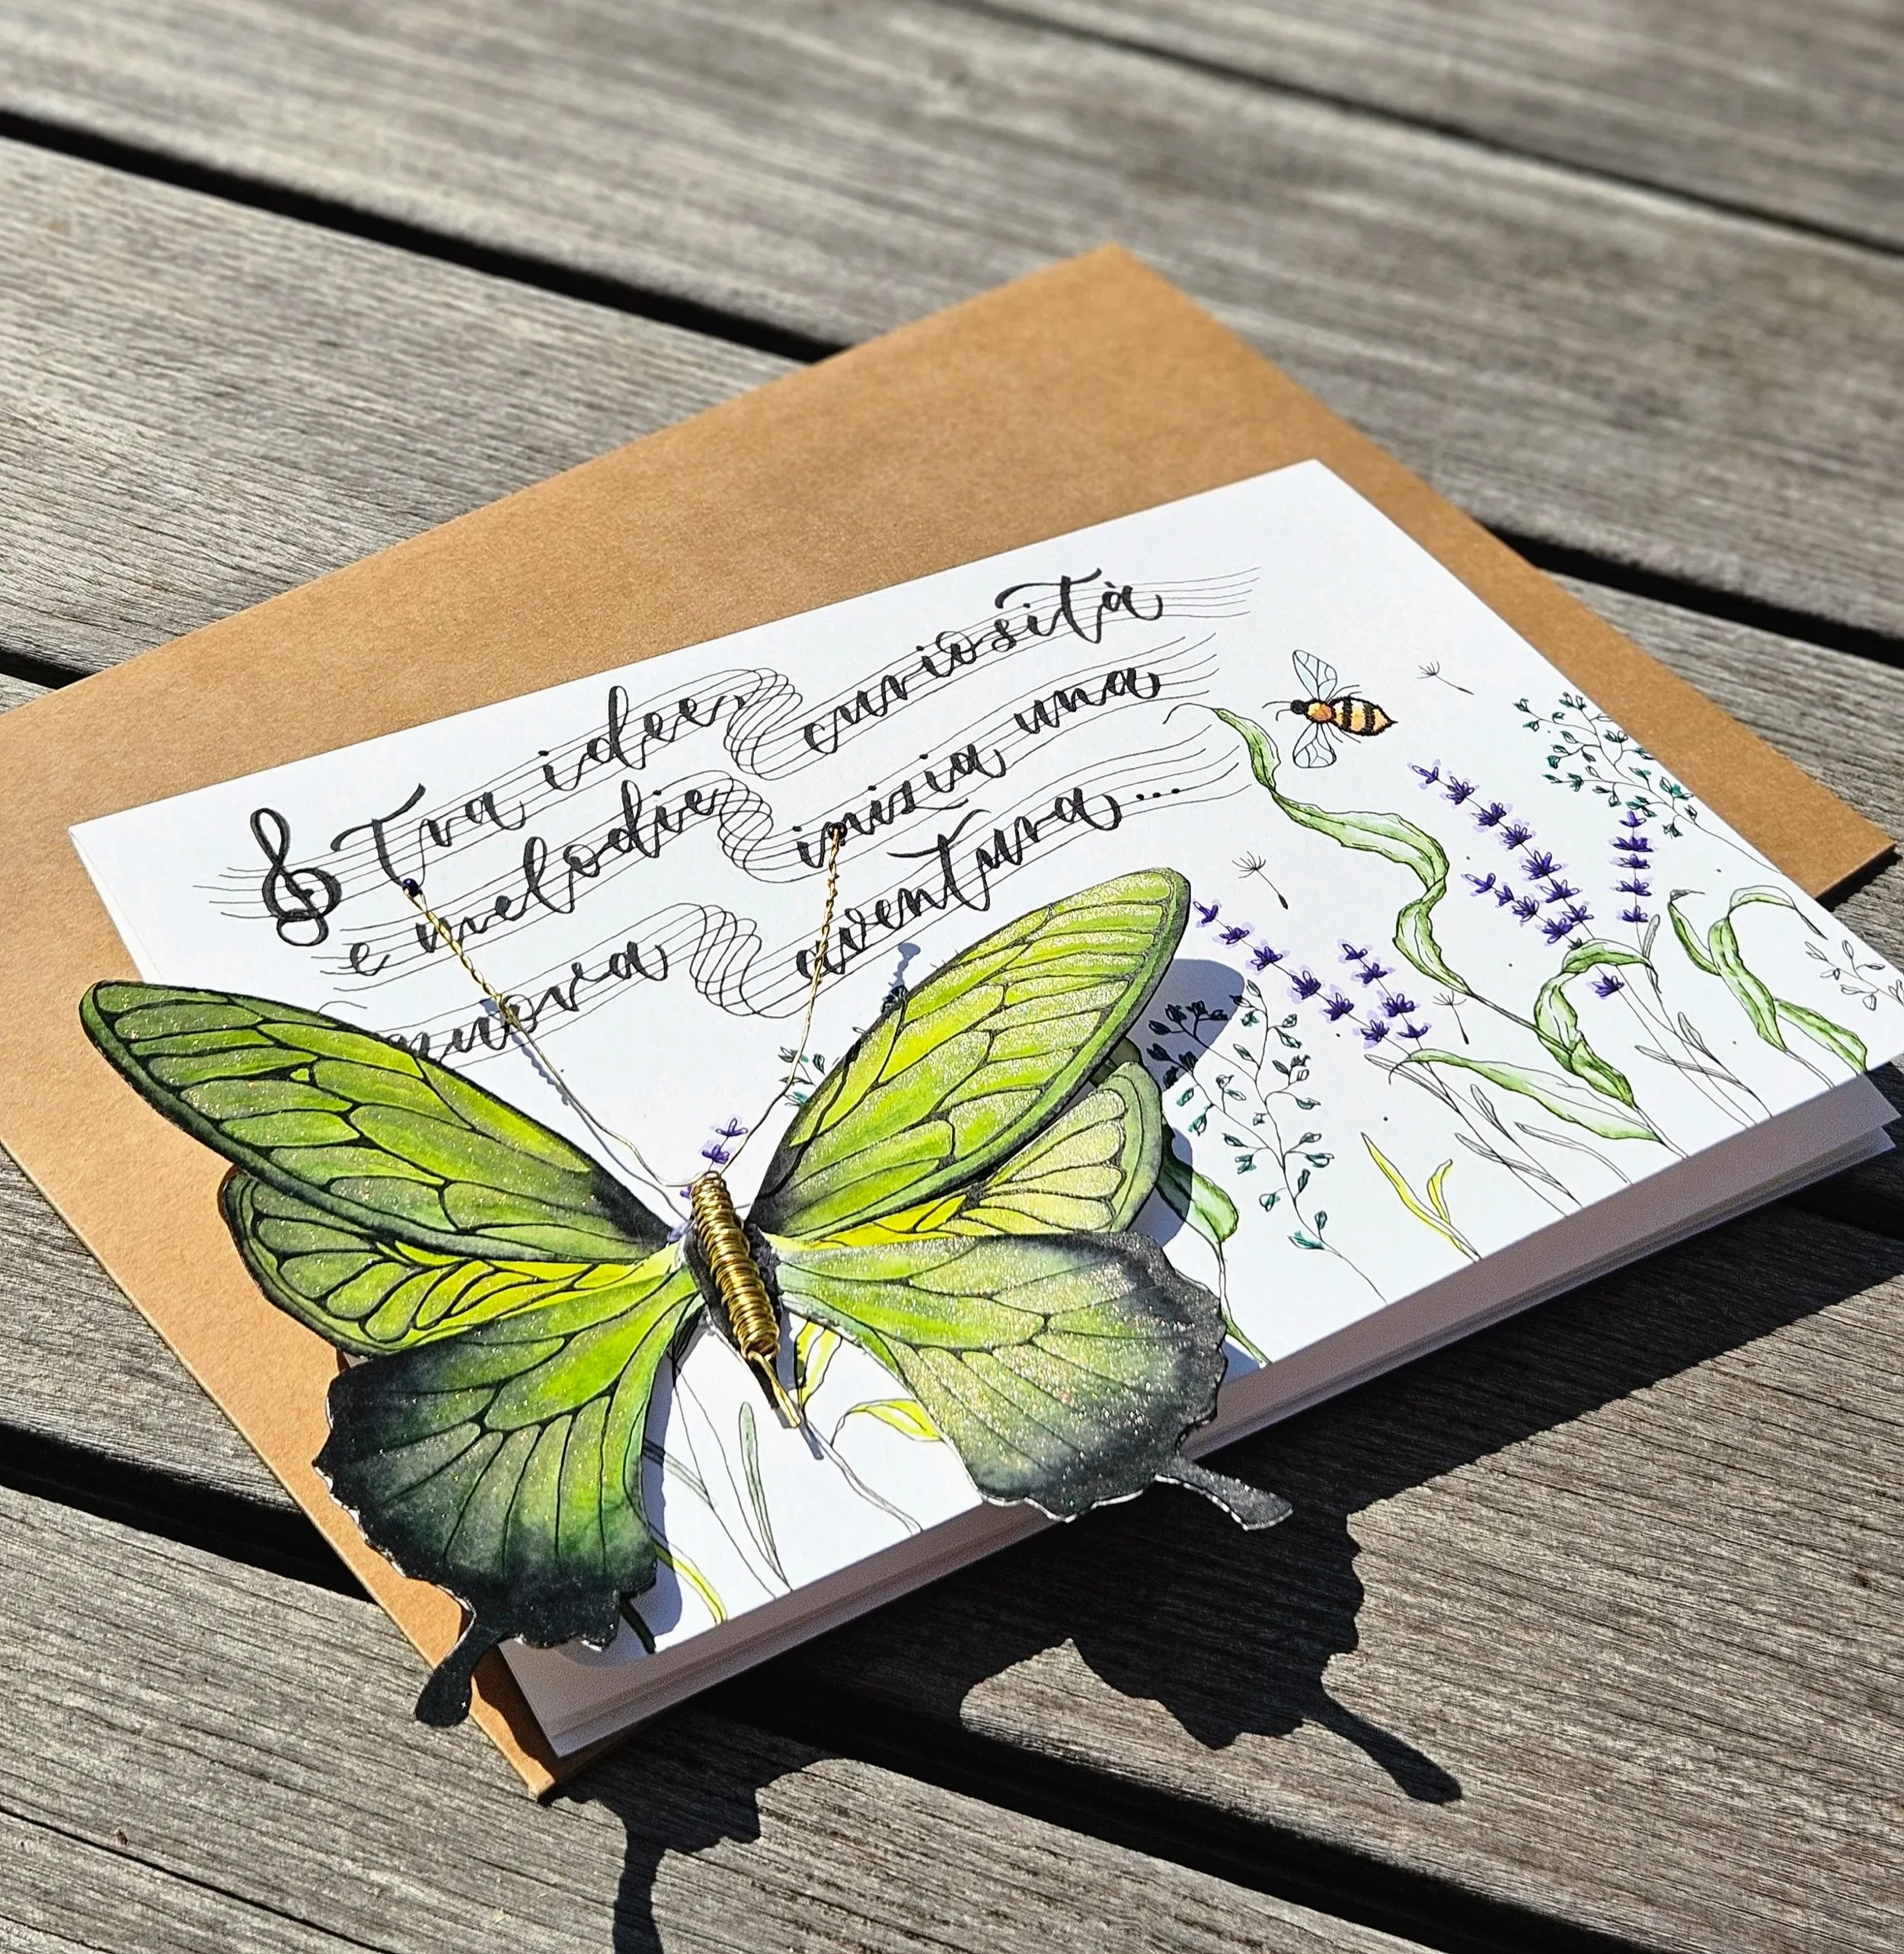 Tra idee, curiosità
e melodie inizia una
nuova avventura...